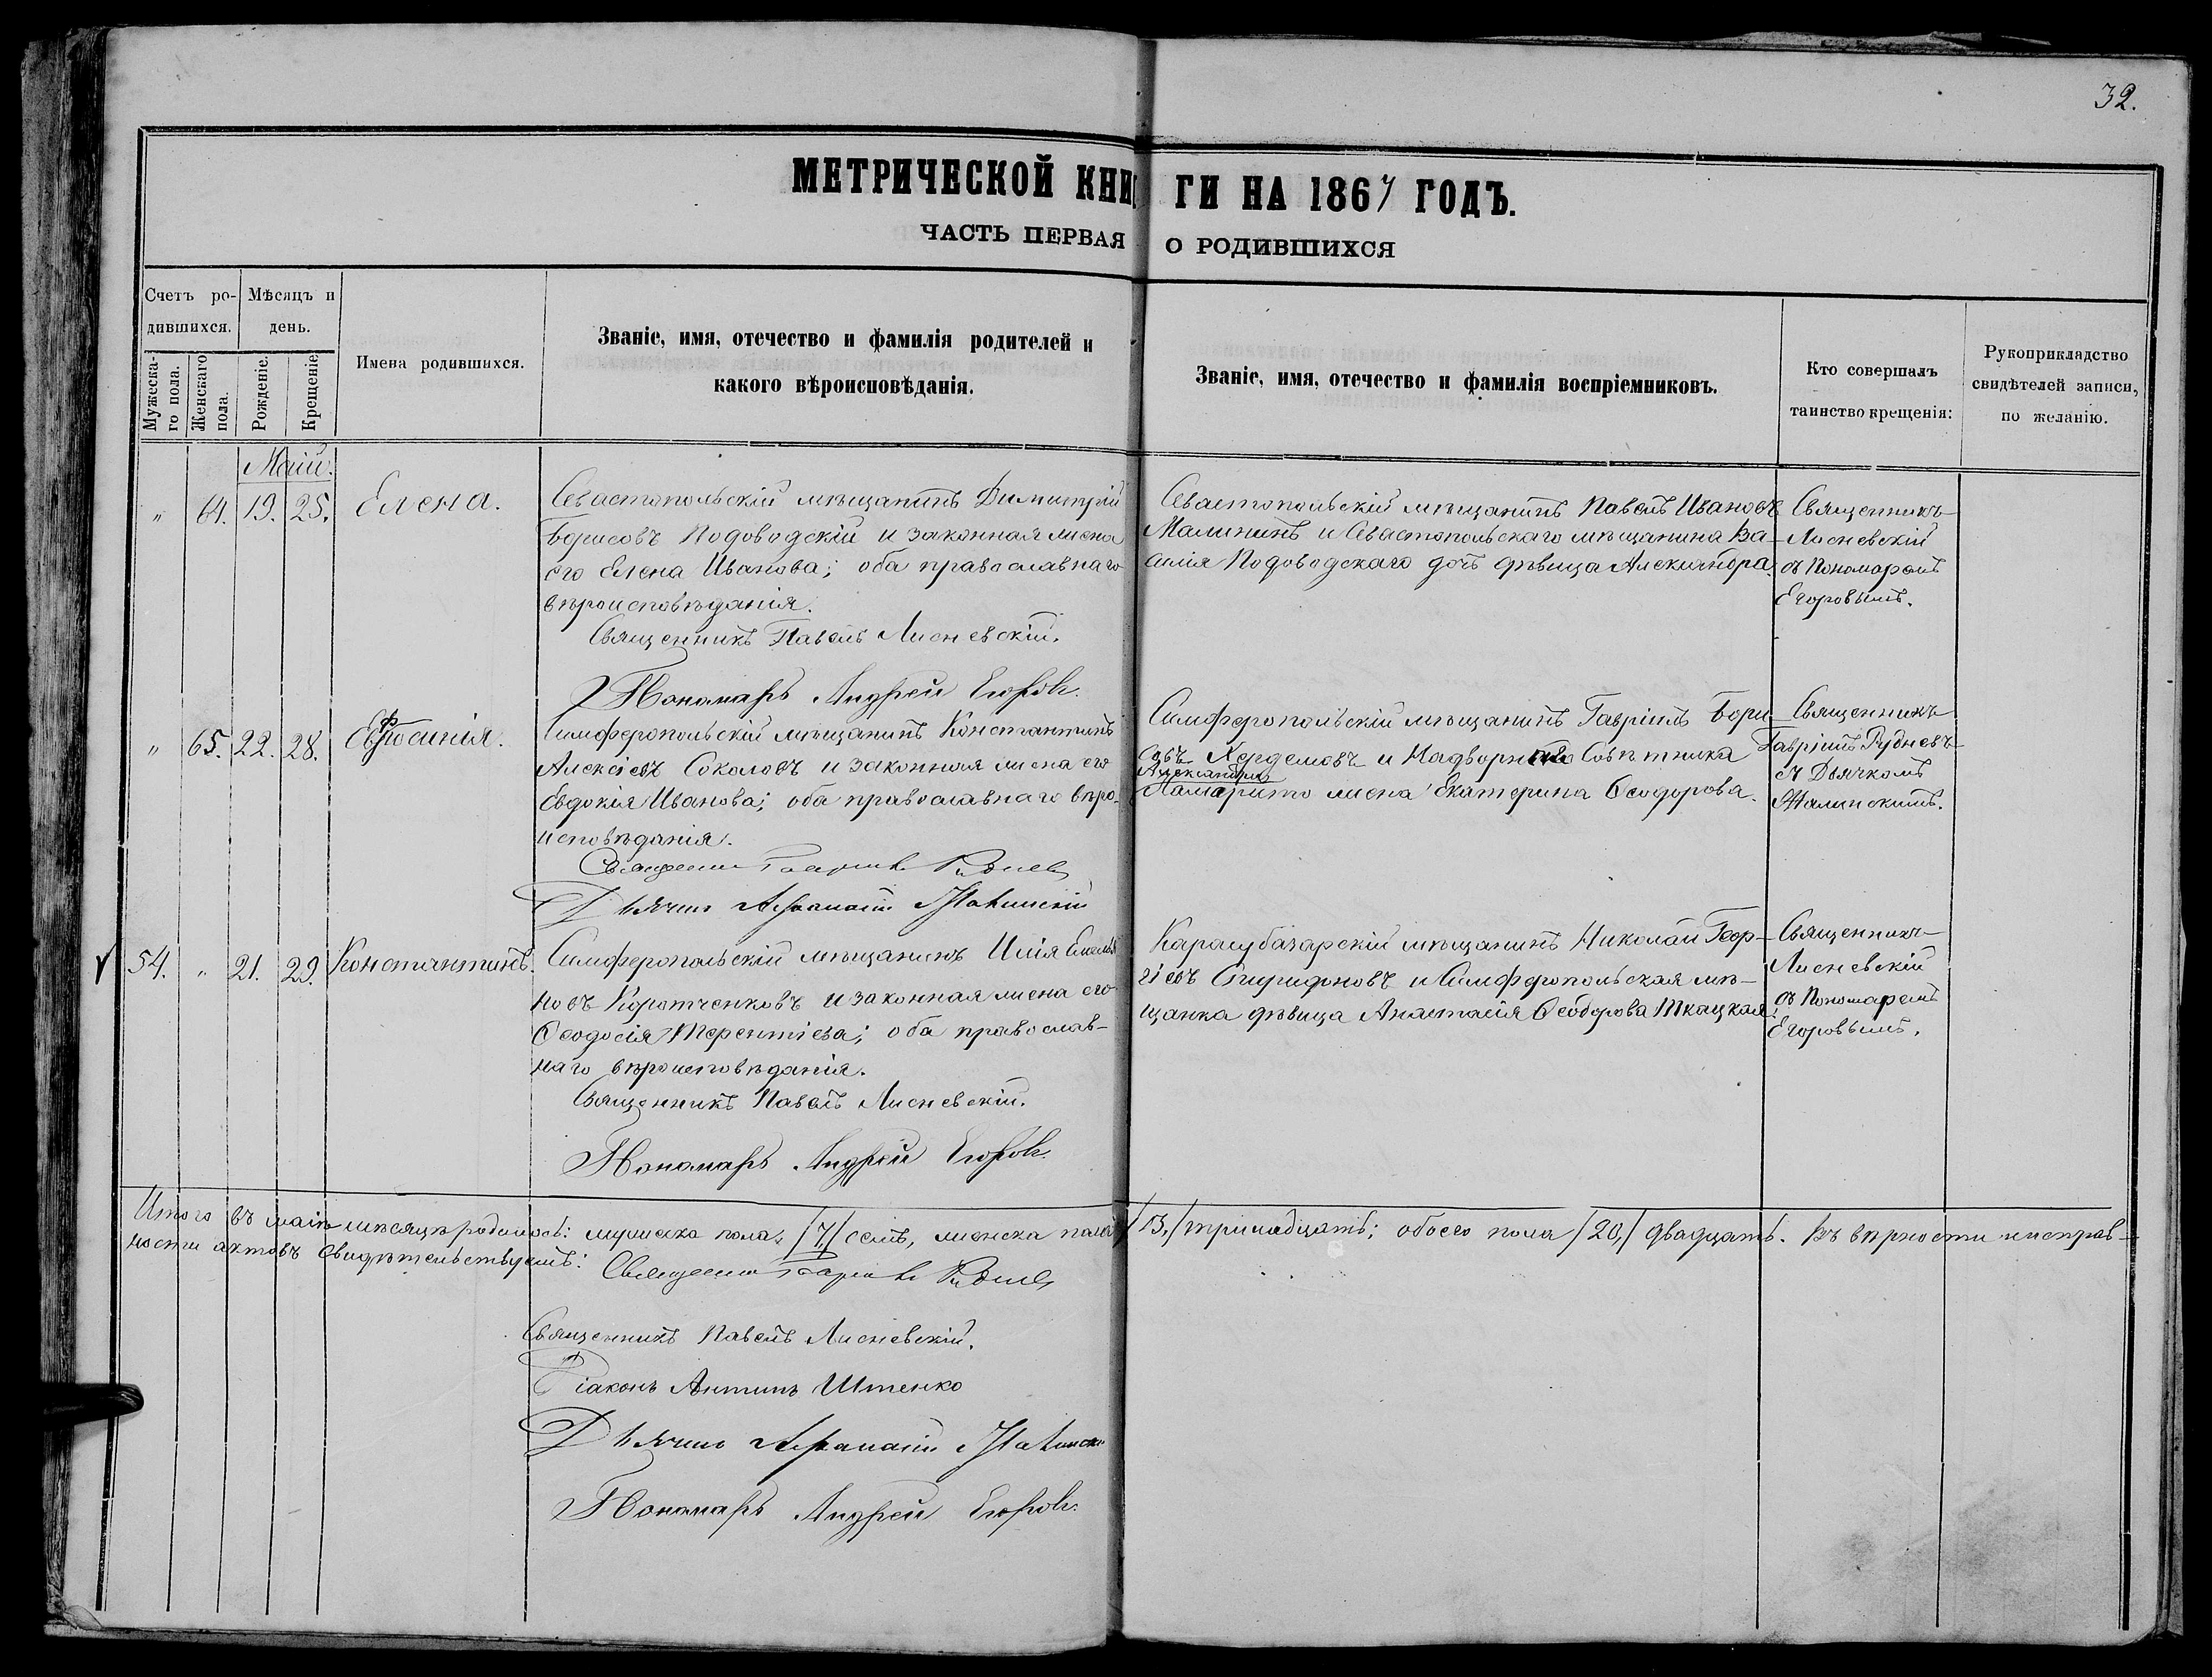 32.
МЕТРИЧЕСКОЙ КНИГИ НА 1867 ГОДЪ.
ЧАСТЬ ПЕРВАЯ О РОДИВШИХСЯ
Счетъ ро-
дившихся.
Мужеска-
го пола.
Женскаго
пола.
Мѣсяцъ и
день.
Рожденіе.
Крещеніе
Имена родившихся.
Званіе, имя, отечество и фамилія родителей и
какого вѣроисповѣданія.
Званіе, имя, отечество и фамилія воспріемниковъ.
Кто совершалъ
таинство крещенія:
Рукоприкладство
свидѣтелей записи,
по желанію.
Маій.
" 64. 19. 25. Елена.
Севастопольскій мѣщанинъ Димитрій
Борисовъ Подоводскій и законная жена
его Елена Иванова; оба православнаго
вѣроисповѣданія.
Священникъ Павелъ Лисневскій.
Пономарь Андрей Егоровъ.
Севастопольскій мѣщанинъ Павелъ Ивановъ
Малининъ и Севастопольскаго мѣщанина Ва-
силія Подоводскаго дочь дѣвица Александра.
Священникъ
Лисневскій
съ Пономаремъ
Егоровымъ.
" 65. 22. 28. Евфросинія.
Симферопольскій мѣщанинъ Константинъ
Алексѣевъ Соколовъ и законная жена его
Евдокія Иванова; оба православнаго вѣро-
исповѣданія.
Священникъ Гавріилъ Рудневъ
Дьячекъ Афанасій Жалинскій
Симферопольскій мѣщанинъ Гавріилъ Бори-
совъ и Надворнаго Совѣтника
Александра
жена Екатерина Ѳеодорова.
Священникъ
Гавріилъ Рудневъ
съ Дьячкомъ
Жалинскимъ.
54. " 21. 29. Константинъ.
Симферопольскій мѣщанинъ Илія Емелья
новъ Коротченковъ и законная жена его
Ѳеодосія Терентіева; оба православ-
наго вѣроисповѣданія.
Священникъ Павелъ Лисневскій.
Пономарь Андрей Егоровъ.
Карасубазарскій мѣщанинъ Николай Геор-
гіевъ Спиридоновъ и Симферопольская мѣ-
щанка дѣвица Анастасія Ѳеодорова Ткацкая.
Священникъ
Лисневскій
съ Пономаремъ
Егоровымъ.
Итого въ маіѣ мѣсяцѣ родилось: мужеска пола, /7,/ семь, женска пола /13,/ тринадцать; обоего пола /20,/ двадцать. Въ вѣрности и исправ-
ности актовъ свидѣтельствуемъ:
Священникъ Гавріилъ Рудневъ
Священникъ Павелъ Лисневскій.
Діаконъ Антипъ Штенко
Дьячекъ Афанасій Жалинскій
Пономарь Андрей Егоровъ.